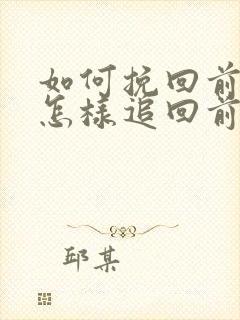 如何挽回前
怎样追回前
邱某